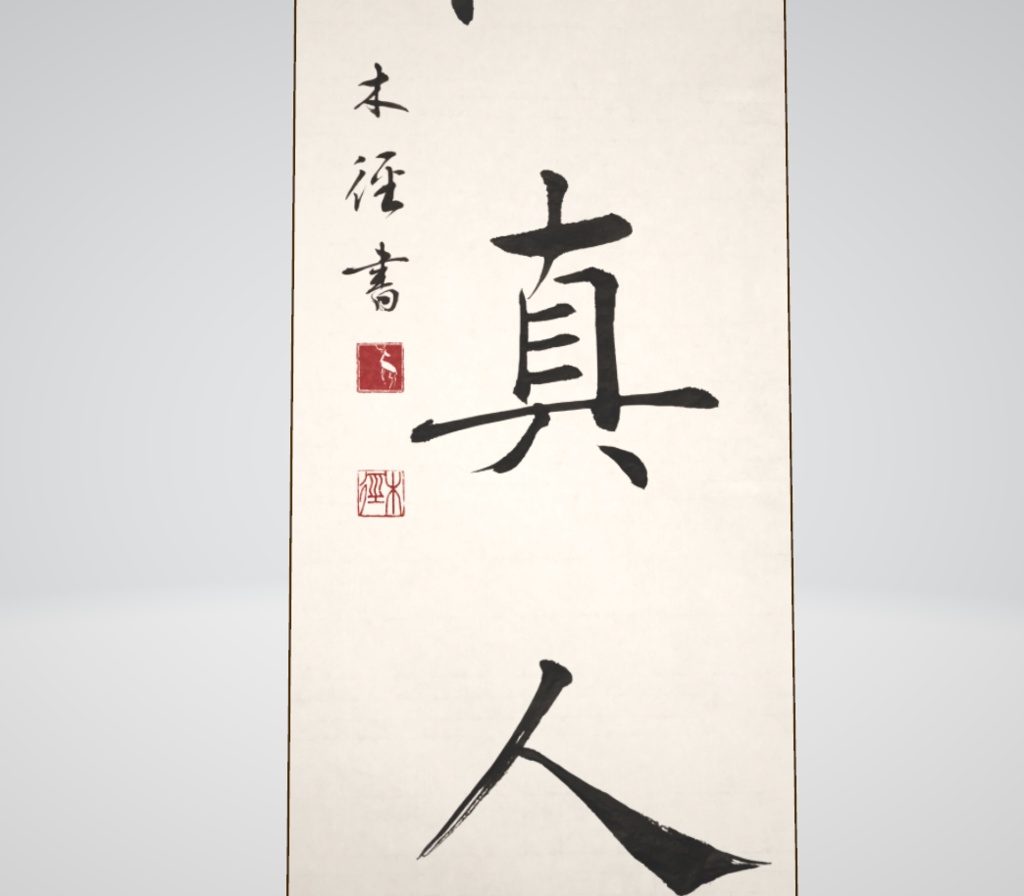 真人
木徑書
木徑